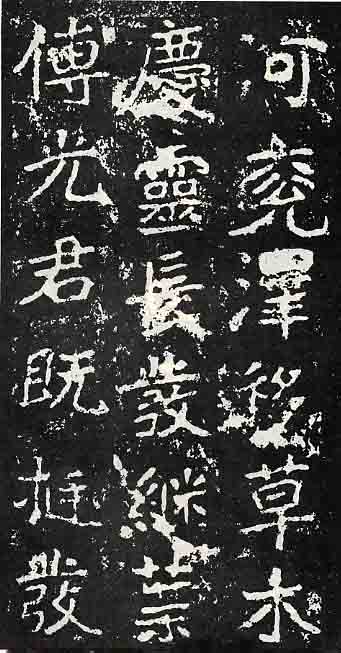 河兗澤移草木
慶靈長發繼葉
傳光君既挺發